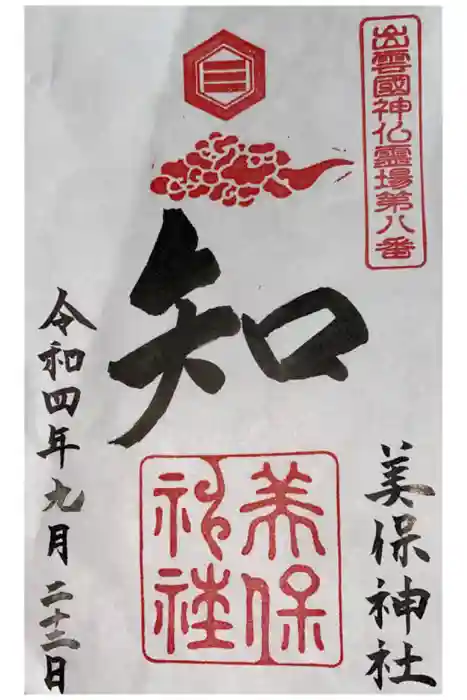 出雲國神仏霊場第八番
知
美保神社
美保
神社
令和四年九月二十三日